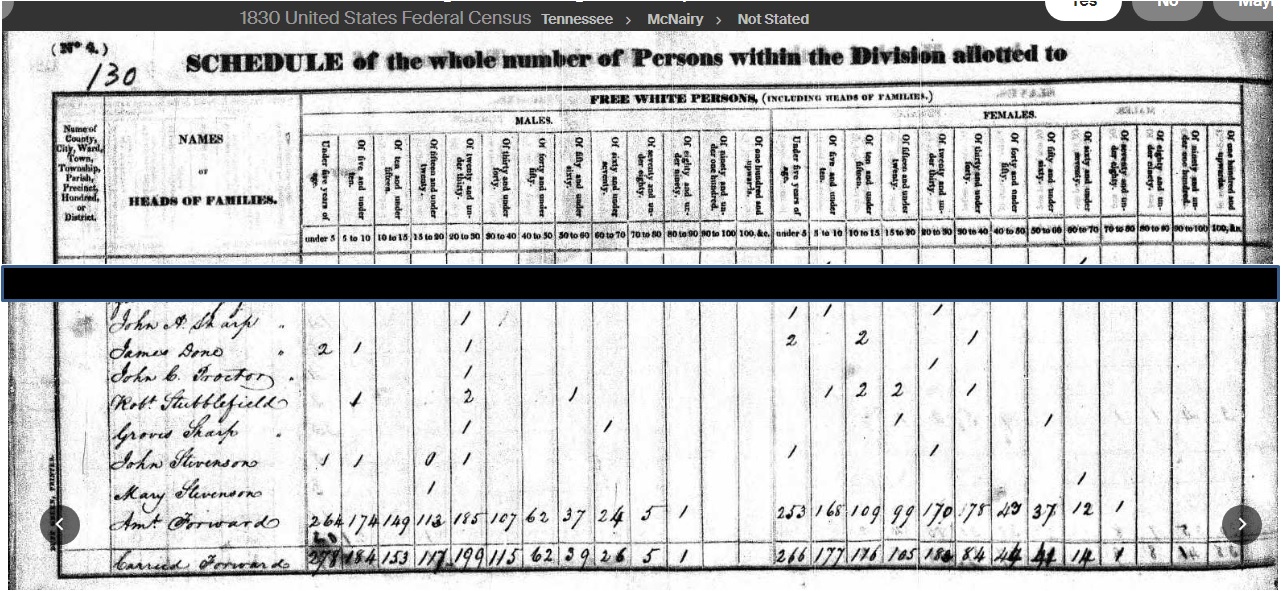 1830 United States Federal Census Tennessee > McNairy > Not Stated
Yes No
(No 4.)
130
SCHEDULE of the whole number of Persons within the Division allotted to
FREE WHITE PERSONS, (INCLUDING HEADS OF FAMILIES.)
MALES. FEMALES.
Name of County, City, Ward, Town, Township, Parish, Precinct, Hundred, or District.
NAMES
OF
HEADS OF FAMILIES.
Under five years of age. Of five and under ten. Of ten and under fifteen. Of fifteen and under twenty. Of twenty and under thirty. Of thirty and under forty. Of forty and under fifty. Of fifty and under sixty. Of sixty and under seventy. Of seventy and under eighty. Of eighty and under ninety. Of ninety and under one hundred. Of one hundred and upwards. Under five years of age. Of five and under ten. Of ten and under fifteen. Of fifteen and under twenty. Of twenty and under thirty. Of thirty and under forty. Of forty and under fifty. Of fifty and under sixty. Of sixty and under seventy. Of seventy and under eighty. Of eighty and under ninety. Of ninety and under one hundred. Of one hundred and upwards.
under 5 5 to 10 10 to 15 15 to 20 20 to 30 30 to 40 40 to 50 50 to 60 60 to 70 70 to 80 80 to 90 90 to 100 100, &c. under 5 5 to 10 10 to 15 15 to 20 20 to 30 30 to 40 40 to 50 50 to 60 60 to 70 70 to 80 80 to 90 90 to 100 100, &c.
John A. Sharp " 1 1 1 1 1
James Done " 2 1 1 2 2 1
John C. Proctor " 1 1
Robt Stubblefield 1 2 1 1 2 2 1
Groves Sharp " 1 1 1 1
John Stevenson 1 1 0 1 1 1
Mary Stevenson 1 1
Amt Forward 264 174 149 113 185 107 62 37 24 5 1 253 168 109 99 170 78 43 37 12 1
Carried Forward 278 184 153 117 199 115 62 39 26 5 1 266 177 116 105 84 44 41 14 1